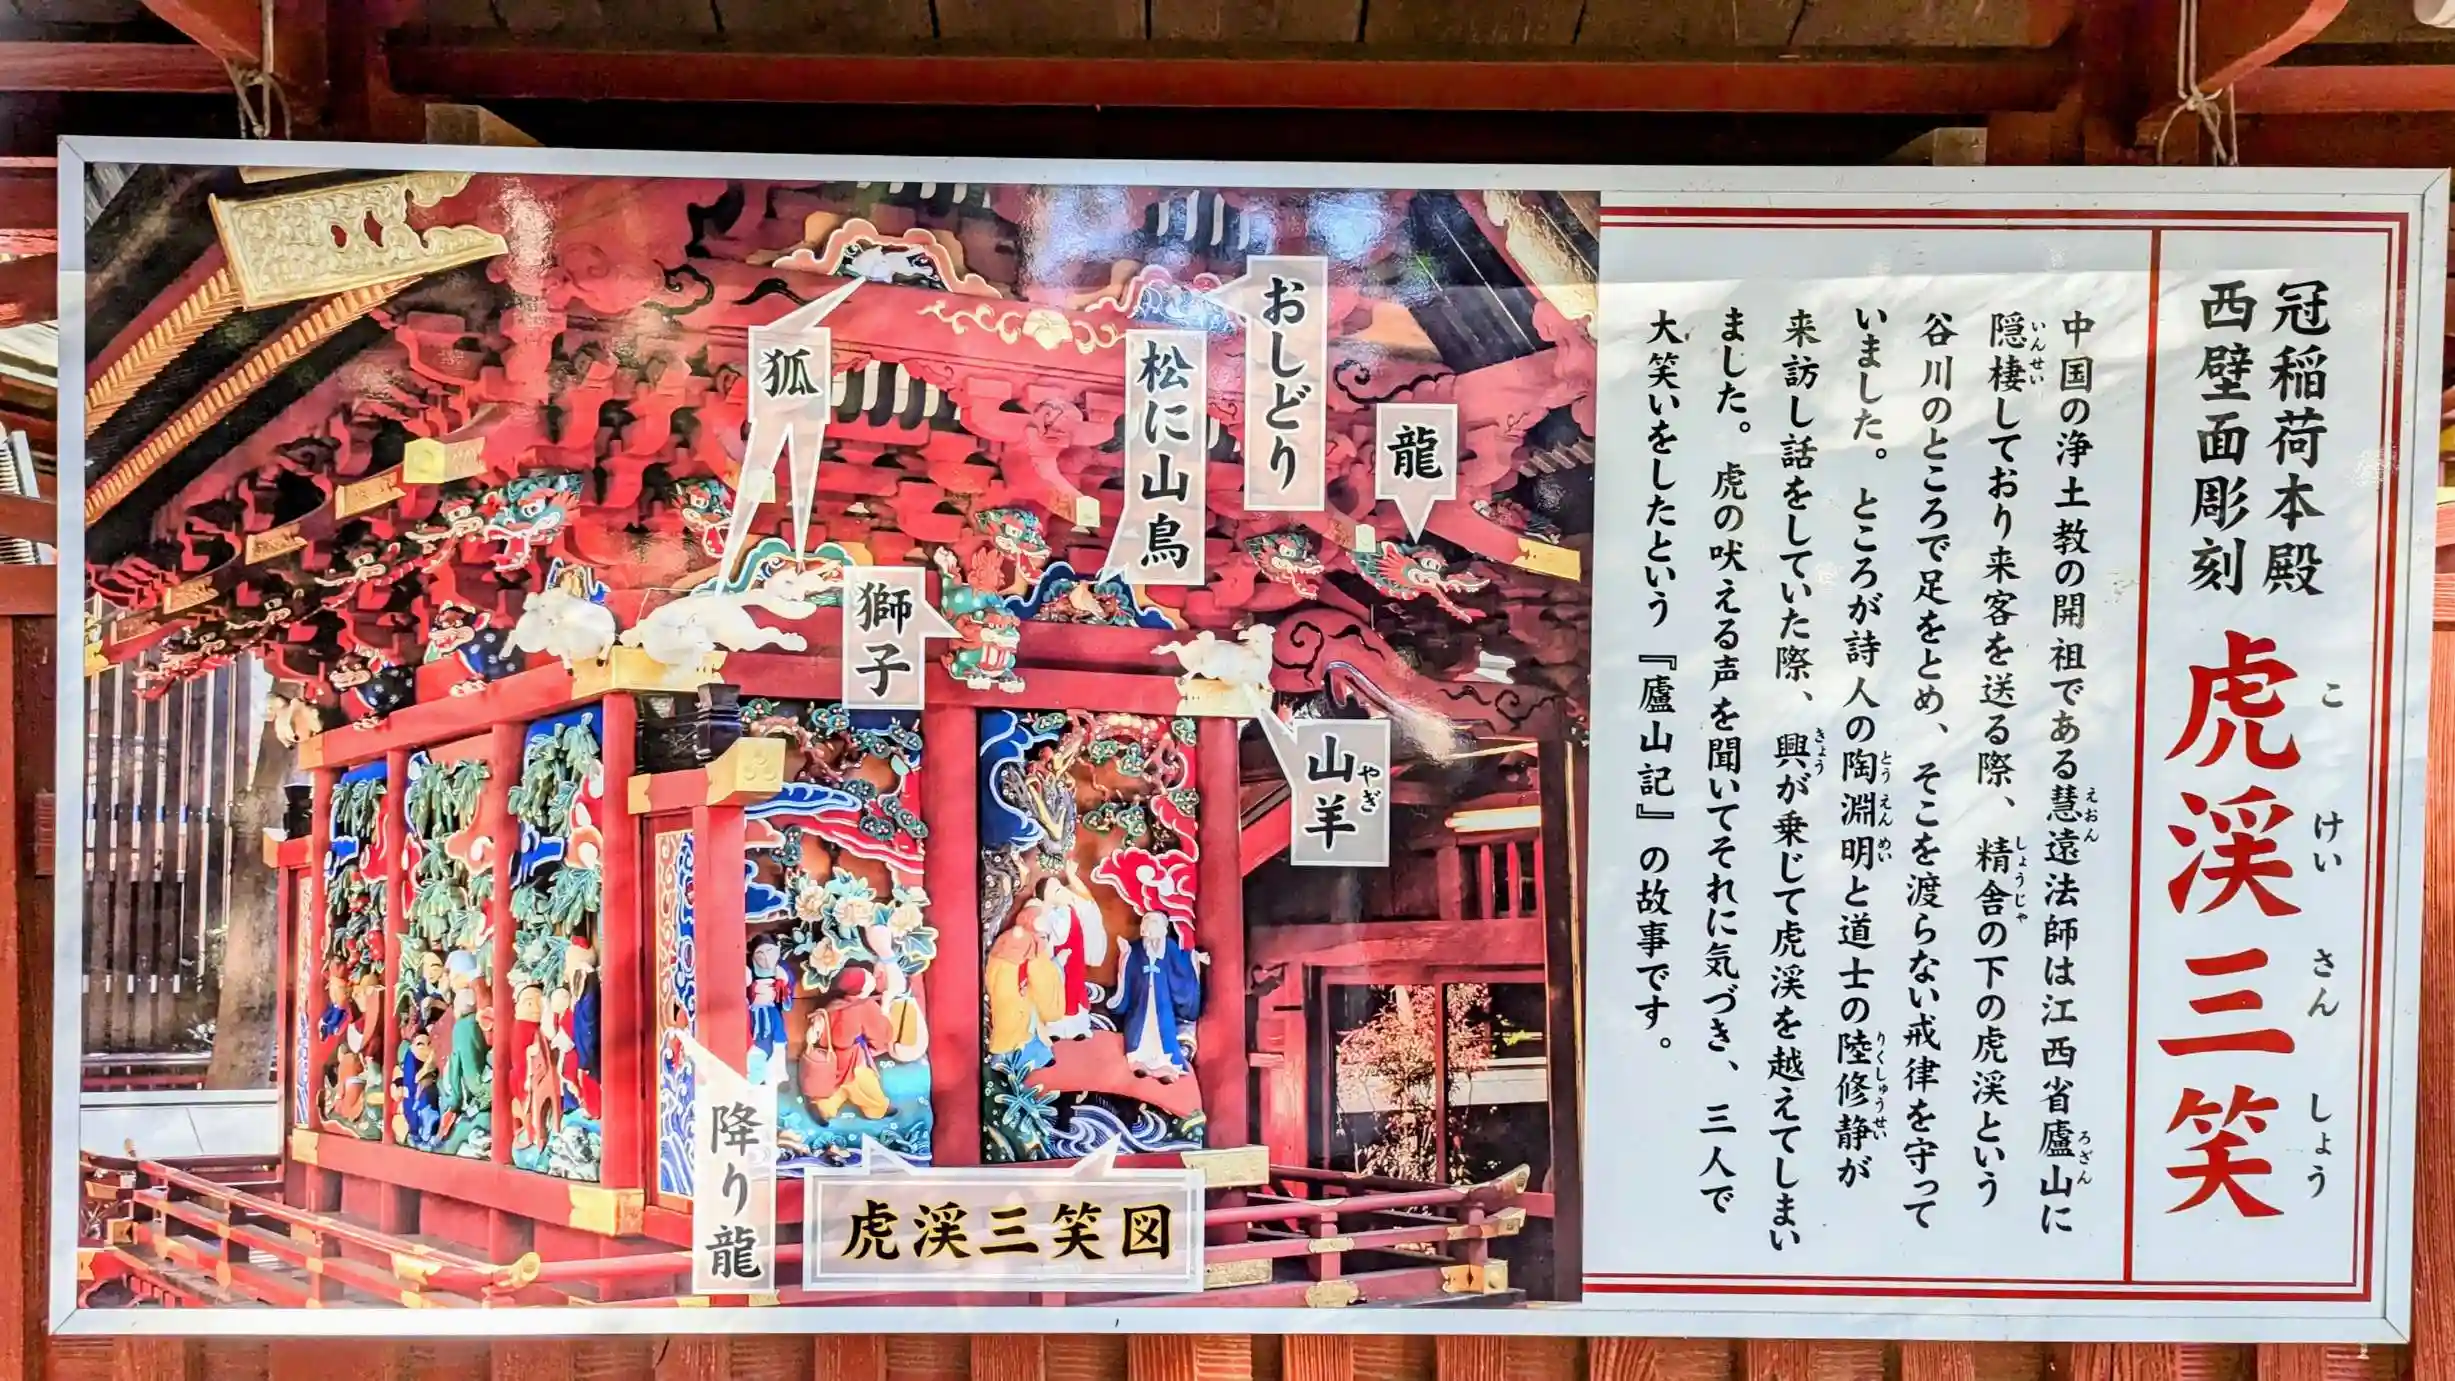 冠稲荷本殿
西壁面彫刻
虎渓三笑
こ けい さん しょう
中国の浄土教の開祖である慧遠法師は江西省廬山に
えおん ろざん
隠棲しており来客を送る際、精舎の下の虎渓という
いんせい しょうじゃ
谷川のところで足をとめ、そこを渡らない戒律を守って
いました。ところが詩人の陶淵明と道士の陸修静が
とうえんめい りくしゅうせい
来訪し話をしていた際、興が乗じて虎渓を越えてしまい
きょう
ました。虎の吠える声を聞いてそれに気づき、三人で
大笑いをしたという『廬山記』の故事です。
龍
おしどり
松に山鳥
狐
獅子
山羊
やぎ
降り龍
虎渓三笑図